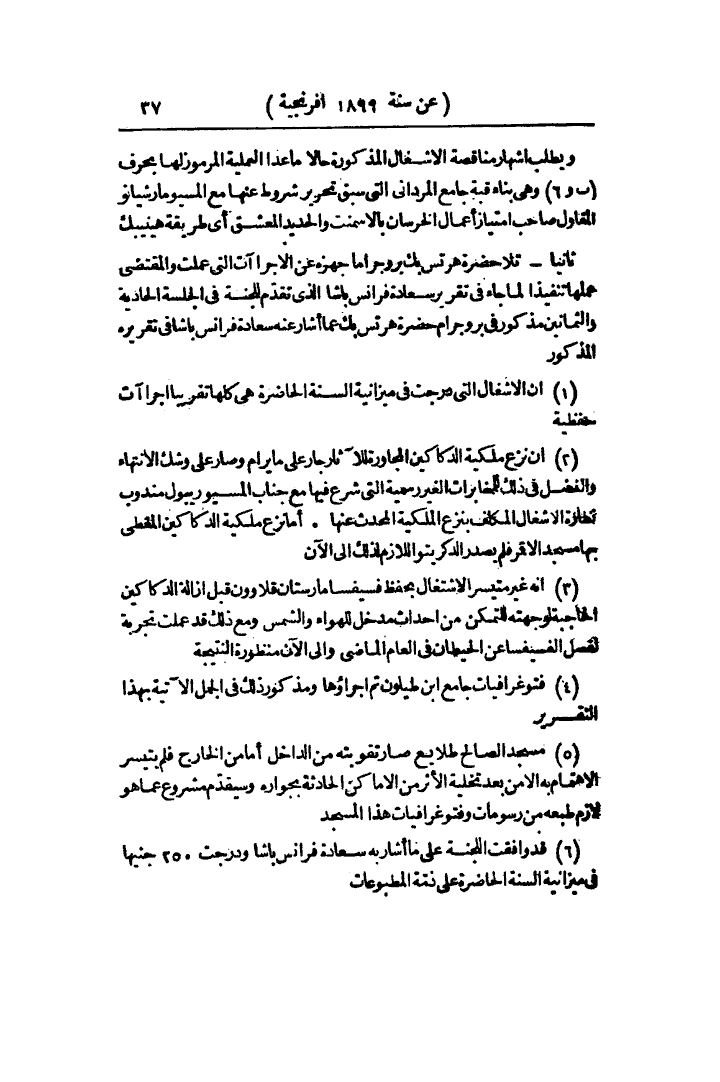 (عن سنة ١٨٩٩ افرنجية) ٣٧
ويطلب اشهار مناقصة الاشغال المذكورة حالا ماعدا العملية المرموزلها بحرف
(ب و ٦) وهى بناء قبة جامع المردانى التى سبق تحرير شروط عنها مع المسيو مارشيانو
المقاول صاحب امتياز أعمال الخرسان بالاسمنت والحديد المعشق أى طريقة هينيبك
ثانيا – تلا حضرة هرتس بك بروجراما جهزه عن الاجراآت التى عملت والمقتضى
عملها تنفيذا لما جاء فى تقرير سعادة فرانس باشا الذى تقدّم للجنة فى الجلسة الحادية
والثمانين مذكور فى بروجرام حضرة هرتس بك عما أشار عنه سعادة فرانس باشا فى تقريره
المذكور
(١) ان الاشغال التى درجت فى ميزانية السنة الحاضرة هى كلها تقريبا اجراآت
حفظية
(٢) ان نزع ملكية الدكاكين المجاورة للآثار جار على مايرام وصار على وشك الانتهاء
والفضل فى ذلك للمخابرات الغير رسمية التى شرع فيها مع جناب المسيو ريبول مندوب
نظارة الاشغال المكلف بنزع الملكية المحدث عنها . أما نزع ملكية الدكاكين المغطى
بها مسجد الاقر فلم يصدر الدكريتو اللازم لذلك الى الآن
(٣) انه غير متيسر الاشتغال بحفظ فسيفسا مارستان قلاوون قبل ازالة الدكاكين
الحاجبة لوجهته للتمكن من احداث مدخل للهواء والشمس ومع ذلك قد عملت تجربة
لفصل الفسيفسا عن الحيطان فى العام الماضى والى الآن منظورة النتيجة
(٤) فتوغرافيات جامع ابن طيلون تم اجراؤها ومذكور ذلك فى الجمل الآتية بهذا
التقرير
(٥) مسجد الصالح طلايع صار تقويته من الداخل أما من الخارج فلم يتيسر
الاهتمام به الا من بعد تخلية الأثر من الاماكن الحادثة بجواره وسيقدّم مشروع عما هو
لازم طبعه من رسومات وفتوغرافيات هذا المسجد
(٦) قد وافقت اللجنة على ما أشار به سعادة فرانس باشا ودرجت ٢٥٠ جنيها
فى ميزانية السنة الحاضرة على ذمّة المطبوعات